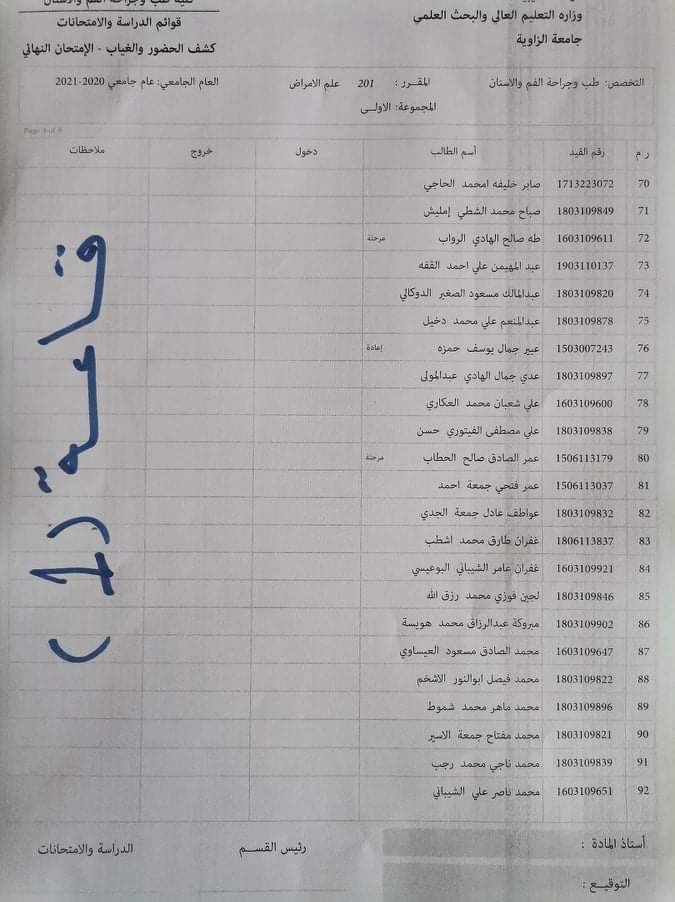 كلية طب وجراحة الفم والأسنان
وزارة التعليم العالي والبحث العلمي
قوائم الدراسة والامتحانات
جامعة الزاوية
كشف الحضور والغياب - الإمتحان النهائي
التخصص: طب وجراحة الفم والأسنان المقـــرر : 201 علم الامراض العام الجامعي: عام جامعي 2020-2021
المجموعة: الاولــى
ر م رقم القيد أسم الطالب دخول خروج ملاحظات
70 1713223072 صابر خليفه امحمد الحاجي
71 1803109849 صباح محمد الشطي إمليش
72 1603109611 طه صالح الهادي الرواب مرحلة
73 1903110137 عبد المهيمن علي احمد الققه
74 1803109820 عبدالمالك مسعود الصغير الدوكالي
75 1803109878 عبدالمنعم علي محمد دخيل
76 1503007243 عبير جمال يوسف حمزه إعادة
77 1803109897 عدي جمال الهادي عبدالمولى
78 1603109600 علي شعبان محمد العكاري
79 1803109838 علي مصطفى الفيتوري حسن
80 1506113179 عمر الصادق صالح الحطاب مرحلة
81 1506113037 عمر فتحي جمعة احمد
82 1803109832 عواطف عادل جمعة الجدي
83 1806113837 غفران طارق محمد اشطب
84 1603109921 غفران عامر الشيباني البوعيسي
85 1803109846 لجين فوزي محمد رزق الله
86 1803109902 مبروكة عبدالرزاق محمد هويسة
87 1603109647 محمد الصادق مسعود العيساوي
88 1803109822 محمد فيصل ابوالنور الاشخم
89 1803109896 محمد ماهر محمد شموط
90 1803109821 محمد مفتاح جمعة الاسير
91 1803109839 محمد ناجي محمد رجب
92 1603109651 محمد ناصر علي الشيباني
قاعة (1)
أستاذ المادة : رئيس القســم الدراسة والامتحانات
التوقيــع :